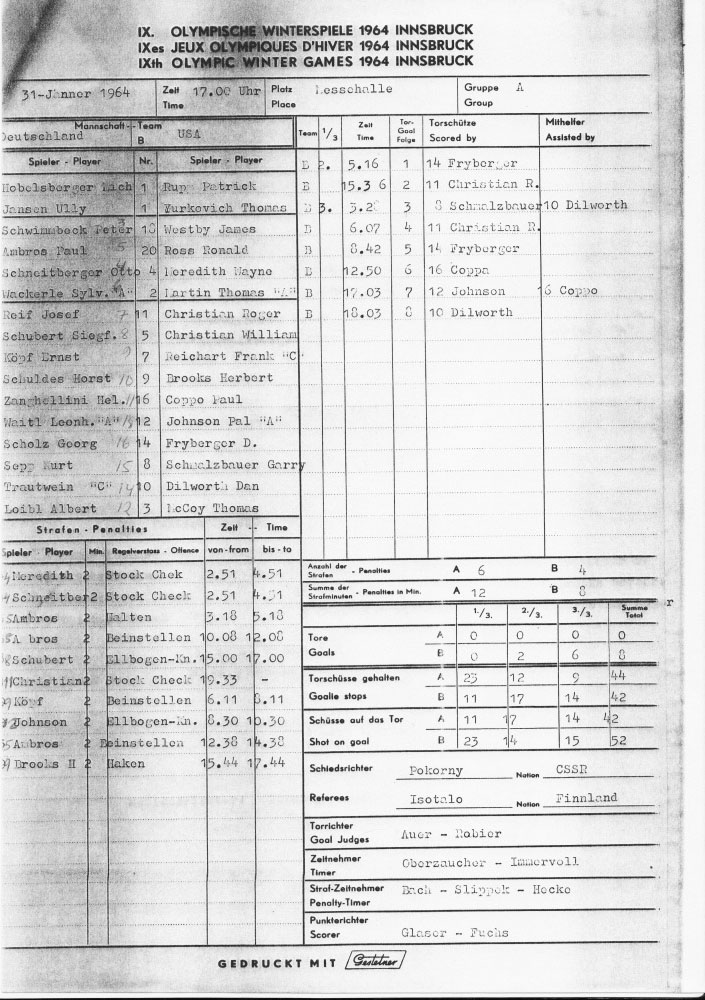 IX. OLYMPISCHE WINTERSPIELE 1964 INNSBRUCK
IXes JEUX OLYMPIQUES D'HIVER 1964 INNSBRUCK
IXth OLYMPIC WINTER GAMES 1964 INNSBRUCK
31-Jänner 1964 Zeit Time 17.00 Uhr Platz Place Messehalle Gruppe Group A
Mannschaft - Team
Deutschland B USA
Team 1/3 Zeit Time Tor- Goal Folge Torschütze Scored by Mithelfer Assisted by
Spieler - Player Nr. Spieler - Player
B 2. 5.16 1 14 Fryberger
Hobelsberger Mich 1 Rupp Patrick B 15.36 2 11 Christian R.
Jansen Ully 1 Yurkovich Thomas B 3. 3 8 Schmalzbauer 10 Dilworth
Schwimmbeck Peter Westby James B 6.07 4 11 Christian R.
Ambros Paul 20 Ross Ronald B 8.42 5 14 Fryberger
Schneitberger Otto 4 Meredith Wayne B 12.50 6 16 Coppa
Wackerle Sylv. "A" 2 Martin Thomas "A" B 17.03 7 12 Johnson 16 Coppo
Reif Josef 7 11 Christian Roger B 18.03 8 10 Dilworth
Schubert Siegf. 8 5 Christian William
Köpf Ernst 9 7 Reichart Frank "C"
Schuldes Horst 10 9 Brooks Herbert
Zanghellini Hel. 11 16 Coppo Paul
Waitl Leonh. "A" 12 Johnson Pal "A"
Scholz Georg 16 14 Fryberger D.
Sepp Kurt 15 8 Schmalzbauer Garry
Trautwein "C" 14 10 Dilworth Dan
Loibl Albert 12 3 McCoy Thomas
Strafen - Penalties Zeit - Time
Spieler - Player Min. Regelverstoss - Offence von-from bis-to
Meredith 2 Stock Chek 2.51 4.51
Schneitber 2 Stock Check 2.51 4.51
Ambros 2 Halten 3.18 5.18
A bros 2 Beinstellen 10.08 12.08
Schubert 2 Ellbogen-Kn. 15.00 17.00
Christian 2 Stock Check 19.33 -
Köpf 2 Beinstellen 6.11 8.11
Johnson 2 Ellbogen-Kn. 8.30 10.30
Ambros 2 Beinstellen 12.38 14.38
Brooks H 2 Haken 15.44 17.44
Anzahl der Strafen - Penalties A 6 B 4
Summe der Strafminuten - Penalties in Min. A 12 B 8
1./3. 2./3. 3./3. Summe Total
Tore A 0 0 0 0
Goals B 0 2 6 8
Torschüsse gehalten A 23 12 9 44
Goalie stops B 11 17 14 42
Schüsse auf das Tor A 11 17 14 42
Shot on goal B 23 14 15 52
Schiedsrichter Pokorny Nation CSSR
Referees Isotalo Nation Finnland
Torrichter
Goal Judges Auer - Robier
Zeitnehmer
Timer Oberzaucher - Immervoll
Straf-Zeitnehmer
Penalty-Timer Bach - Slippek - Hocke
Punkterichter
Scorer Glaser - Fuchs
GEDRUCKT MIT Gestetner